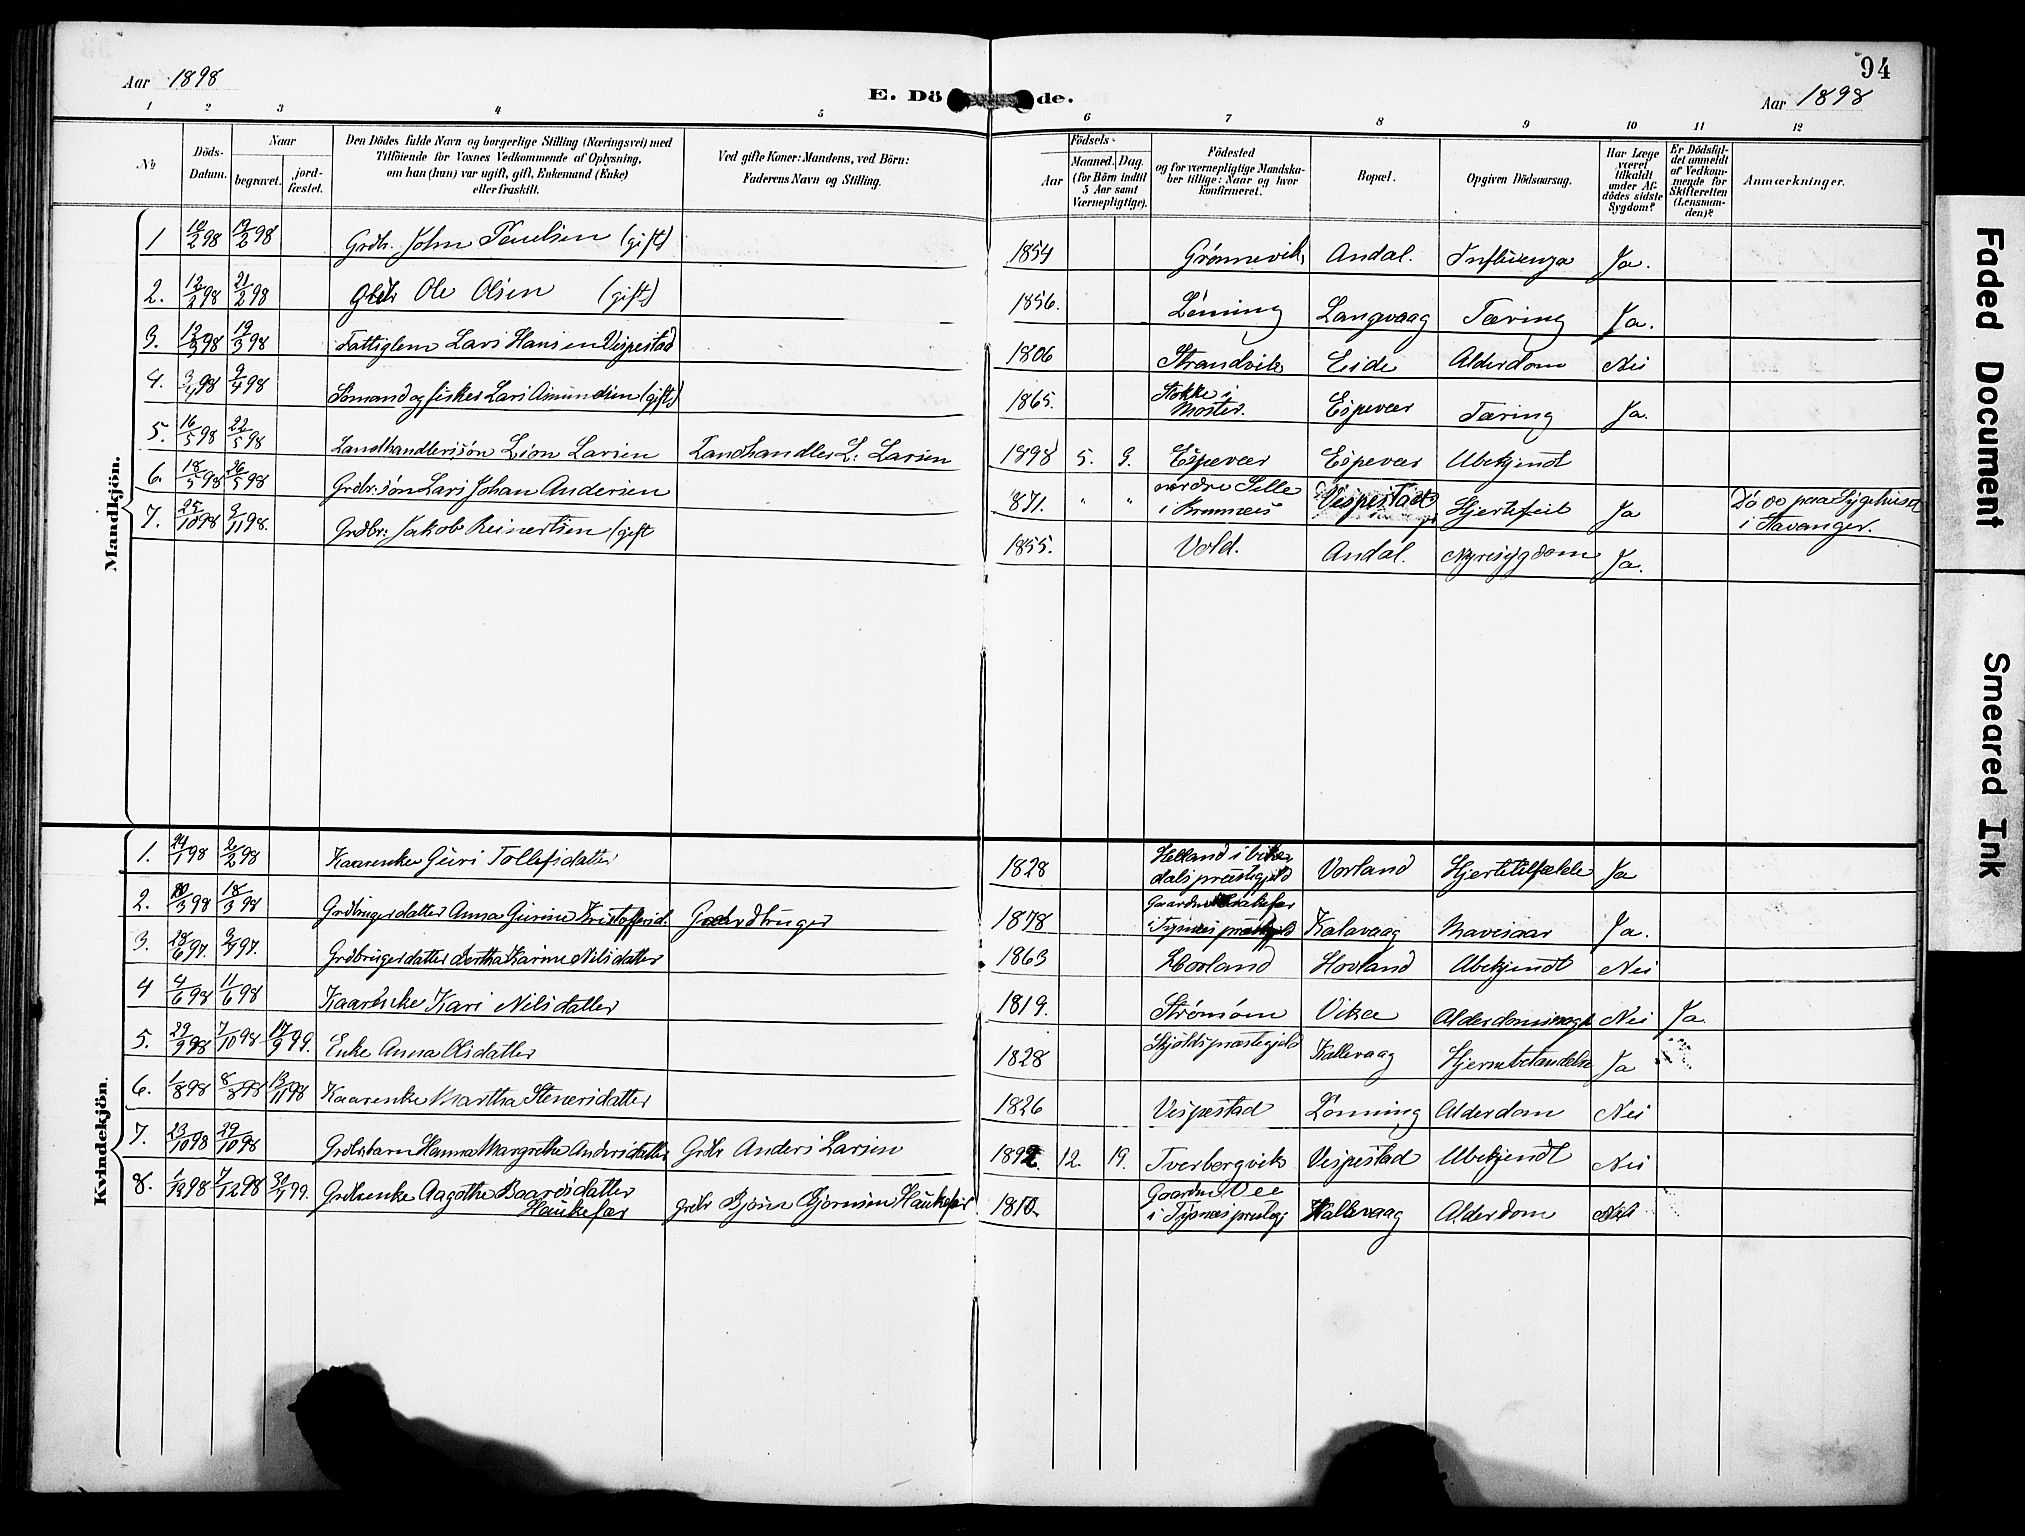 94
Aar 1898
E. Döde.
Aar 1898
1 2 3 4 5 6 7 8 9 10 11 12
№
Döds-Datum.
Naar
begravet.
jord-fæstet.
Den Dödes fulde Navn og borgerlige Stilling (Næringsvei) med
Tilföiende for Voxnes Vedkommende af Oplysning,
om han (hun) var ugift, gift, Enkemand (Enke)
eller fraskilt.
Ved gifte Koner: Mandens, ved Börn:
Faderens Navn og Stilling.
Födsels-
Aar
Maaned. Dag.
(for Börn indtil
5 Aar samt
Værnepligtige).
Födested
og for værnepligtige Mandska-
ber tillige: Naar og hvor
konfirmeret.
Bopæl.
Opgiven Dödsaarsag.
Har Læge
været
tilkaldt
under Af-
dödes sidste
Sygdom?
Er Dödsfal-
det anmeldt
af Vedkom-
mende for
Skifteretten
(Lensman-
den)?
Anmærkninger.
Mandkjön.
1 /2 98 /2 98 Grdbr. John Paulsen (gift) 1854 Grønnevik Andal. Influenza Ja.
2. 12/2 98 21/2 98 Ole Olsen (gift) 1856. Lønning Langvaag Tæring Ja.
3. 12/3 98 19/3 98 Fattiglem Lars Hansen Vespestad 1806 Strandvik Eide Alderdom Nei
4. 3/4 98 9/4 98 Sømand og fisker Lars Amundsen (gift) 1865. Stokke i Moster. Espevær Tæring Ja.
5. 16/5 98 22/5 98 Landhandlersøn Lion Larsen Landhandler L. Larsen 1898 5. 9. Espevær Espevær Ubekjendt
6. 18/5 98 26/5 98 Grdbr. søn Lars Johan Andersen 871. " " nordre Selle i Bremnes Vespestad Hjertefeil Ja Døde paa Sygehuset i Stavanger.
7. 25/10 98 2/11 98. Grdbr: Jakob Reinertsen (gift 1855. Vold. Andal. Nyresygdom Ja.
Kvindekjön.
1. 24/1 98 2/2 98 Kaarenke Guri Tollefsdatter 1828 Helland i dals præstegjeld Vorland Hjertetilfælde Ja
2. 10/3 98 18/3 98 Grdbrugerdatter Anna Gurine Kristoffersd. Gaardbruger 1878 Gaarden i Tysnes præstegjeld Kalavaag Mavesaar Ja.
3. 28/6 97. /7 97. Grdbrugerdatter Bertha Karine Nilsdatter 1863 Hovland Hovland Ubekjendt Nei
4 4/6 98 11/6 98 Kaarenke Kari Nilsdatter 1819. Strømøen Vika Alderdomssvagh Nei Ja
5. 29/9 98 7/10 98 17/9 99. Enke Anna Olsdatter 1828 Skjolds præstegjeld Kallevaag Hjernebetændelse Ja
6. 1/8 98 8/8 98 13/11 98 Kaarenke Martha Stenersdatter 1826 Vespestad Lønning Alderdom Nei
7. 23/10 98 29/10 98 Grdbrbarn Hanna Margrethe Andersdatter Grdbr Anders Larsen 1892. 12. 19. Tverborgvik Vespestad Ubekjendt Nei
8. 1/12 98 7/12 98 30/1 99. Grdbrenke Aagothe Baardsdatter Haukefær Grdbr Bjørn Bjørnsen Haukefær 1810 Gaarden Vee i Tysnes præstegj Kallevaag Alderdom Nei
Faded Document
Smeared Ink